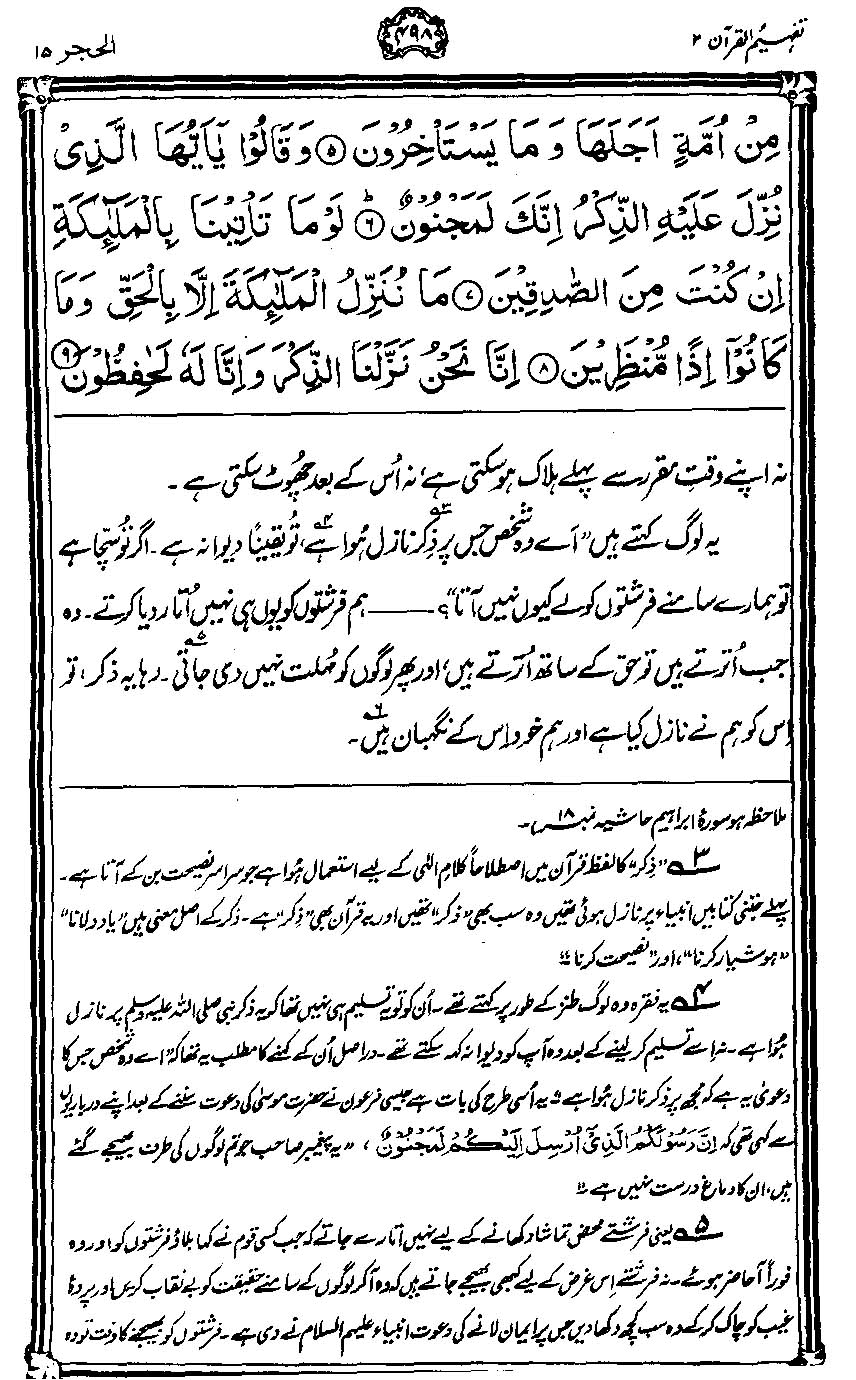 تفہیم القرآن ۲
۴۹۸
الحجر ۱۵
مِنْ اُمَّةٍ اَجَلَهَا وَ مَا يَسْتَاْخِرُوْنَ ۵ وَ قَالُوْا يٰۤاَيُّهَا الَّذِىْ
نُزِّلَ عَلَيْهِ الذِّكْرُ اِنَّكَ لَمَجْنُوْنٌ ۶ؕ لَوْ مَا تَاْتِيْنَا بِالْمَلٰٓئِكَةِ
اِنْ كُنْتَ مِنَ الصّٰدِقِيْنَ ۷ مَا نُنَزِّلُ الْمَلٰٓئِكَةَ اِلَّا بِالْحَقِّ وَ مَا
كَانُوْۤا اِذًا مُّنْظَرِيْنَ ۸ اِنَّا نَحْنُ نَزَّلْنَا الذِّكْرَ وَ اِنَّا لَهٗ لَحٰفِظُوْنَ ۹
نہ اپنے وقتِ مقرر سے پہلے ہلاک ہو سکتی ہے، نہ اُس کے بعد چھُوٹ سکتی ہے۔
یہ لوگ کہتے ہیں ”اَے وہ شخص جس پر ذِکر۳ نازل ہُوا ہے۴، تُو یقیناً دیوانہ ہے۔ اگر تُو سچّا ہے
تو ہمارے سامنے فرشتوں کو لے کیوں نہیں آتا“؟ ——— ہم فرشتوں کو یوں ہی نہیں اُتار دیا کرتے۔ وہ
جب اُترتے ہیں تو حق کے ساتھ اُترتے ہیں، اور پھر لوگوں کو مُہلت نہیں دی جاتی۵۔ رہا یہ ذکر، تو
اِس کو ہم نے نازل کیا ہے اور ہم خود اِس کے نگہبان ہیں۶۔
ملاحظہ ہو سورۂ ابراہیم حاشیہ نمبر ۱۸)۔
۳ ”ذِکر“ کا لفظ قرآن میں اصطلاحاً کلامِ الٰہی کے لیے استعمال ہُوا ہے جو سراسر نصیحت بن کے آتا ہے۔
پہلے جتنی کتابیں انبیاء پر نازل ہوئی تھیں وہ سب بھی ”ذکر“ تھیں اور یہ قرآن بھی ”ذِکر“ ہے۔ ذکر کے اصل معنی ہیں ”یاد دلانا“
”ہوشیار کرنا“، اور ”نصیحت کرنا“۔
۴ یہ فقرہ وہ لوگ طنز کے طور پر کہتے تھے۔ اُن کو تو یہ تسلیم ہی نہیں تھا کہ یہ ذکر نبی صلی اللہ علیہ وسلم پر نازل
ہُوا ہے۔ نہ اسے تسلیم کر لینے کے بعد وہ آپ کو دیوانہ کہہ سکتے تھے۔ دراصل اُن کے کہنے کا مطلب یہ تھا کہ ”اے وہ شخص جس کا
دعویٰ یہ ہے کہ مجھ پر ذکر نازل ہُوا ہے“۔ یہ اُسی طرح کی بات ہے جیسی فرعون نے حضرت موسیٰ کی دعوت سننے کے بعد اپنے درباریوں
سے کہی تھی کہ اِنَّ رَسُوْلَكُمُ الَّذِىْٓ اُرْسِلَ اِلَيْكُمْ لَمَجْنُوْنٌ، ”یہ پیغمبر صاحب جو تم لوگوں کی طرف بھیجے گئے
ہیں، ان کا دماغ درست نہیں ہے“۔
۵ یعنی فرشتے محض تماشا دکھانے کے لیے نہیں اُتارے جاتے کہ جب کسی قوم نے کہا بلاؤ فرشتوں کو اور وہ
فوراً آ حاضر ہوئے۔ نہ فرشتے اِس غرض کے لیے کبھی بھیجے جاتے ہیں کہ وہ آ کر لوگوں کے سامنے حقیقت کو بے نقاب کریں اور پردۂ
غیب کو چاک کر کے وہ سب کچھ دکھا دیں جس پر ایمان لانے کی دعوت انبیاء علیہم السلام نے دی ہے۔ فرشتوں کو بھیجنے کا وقت تو وہ